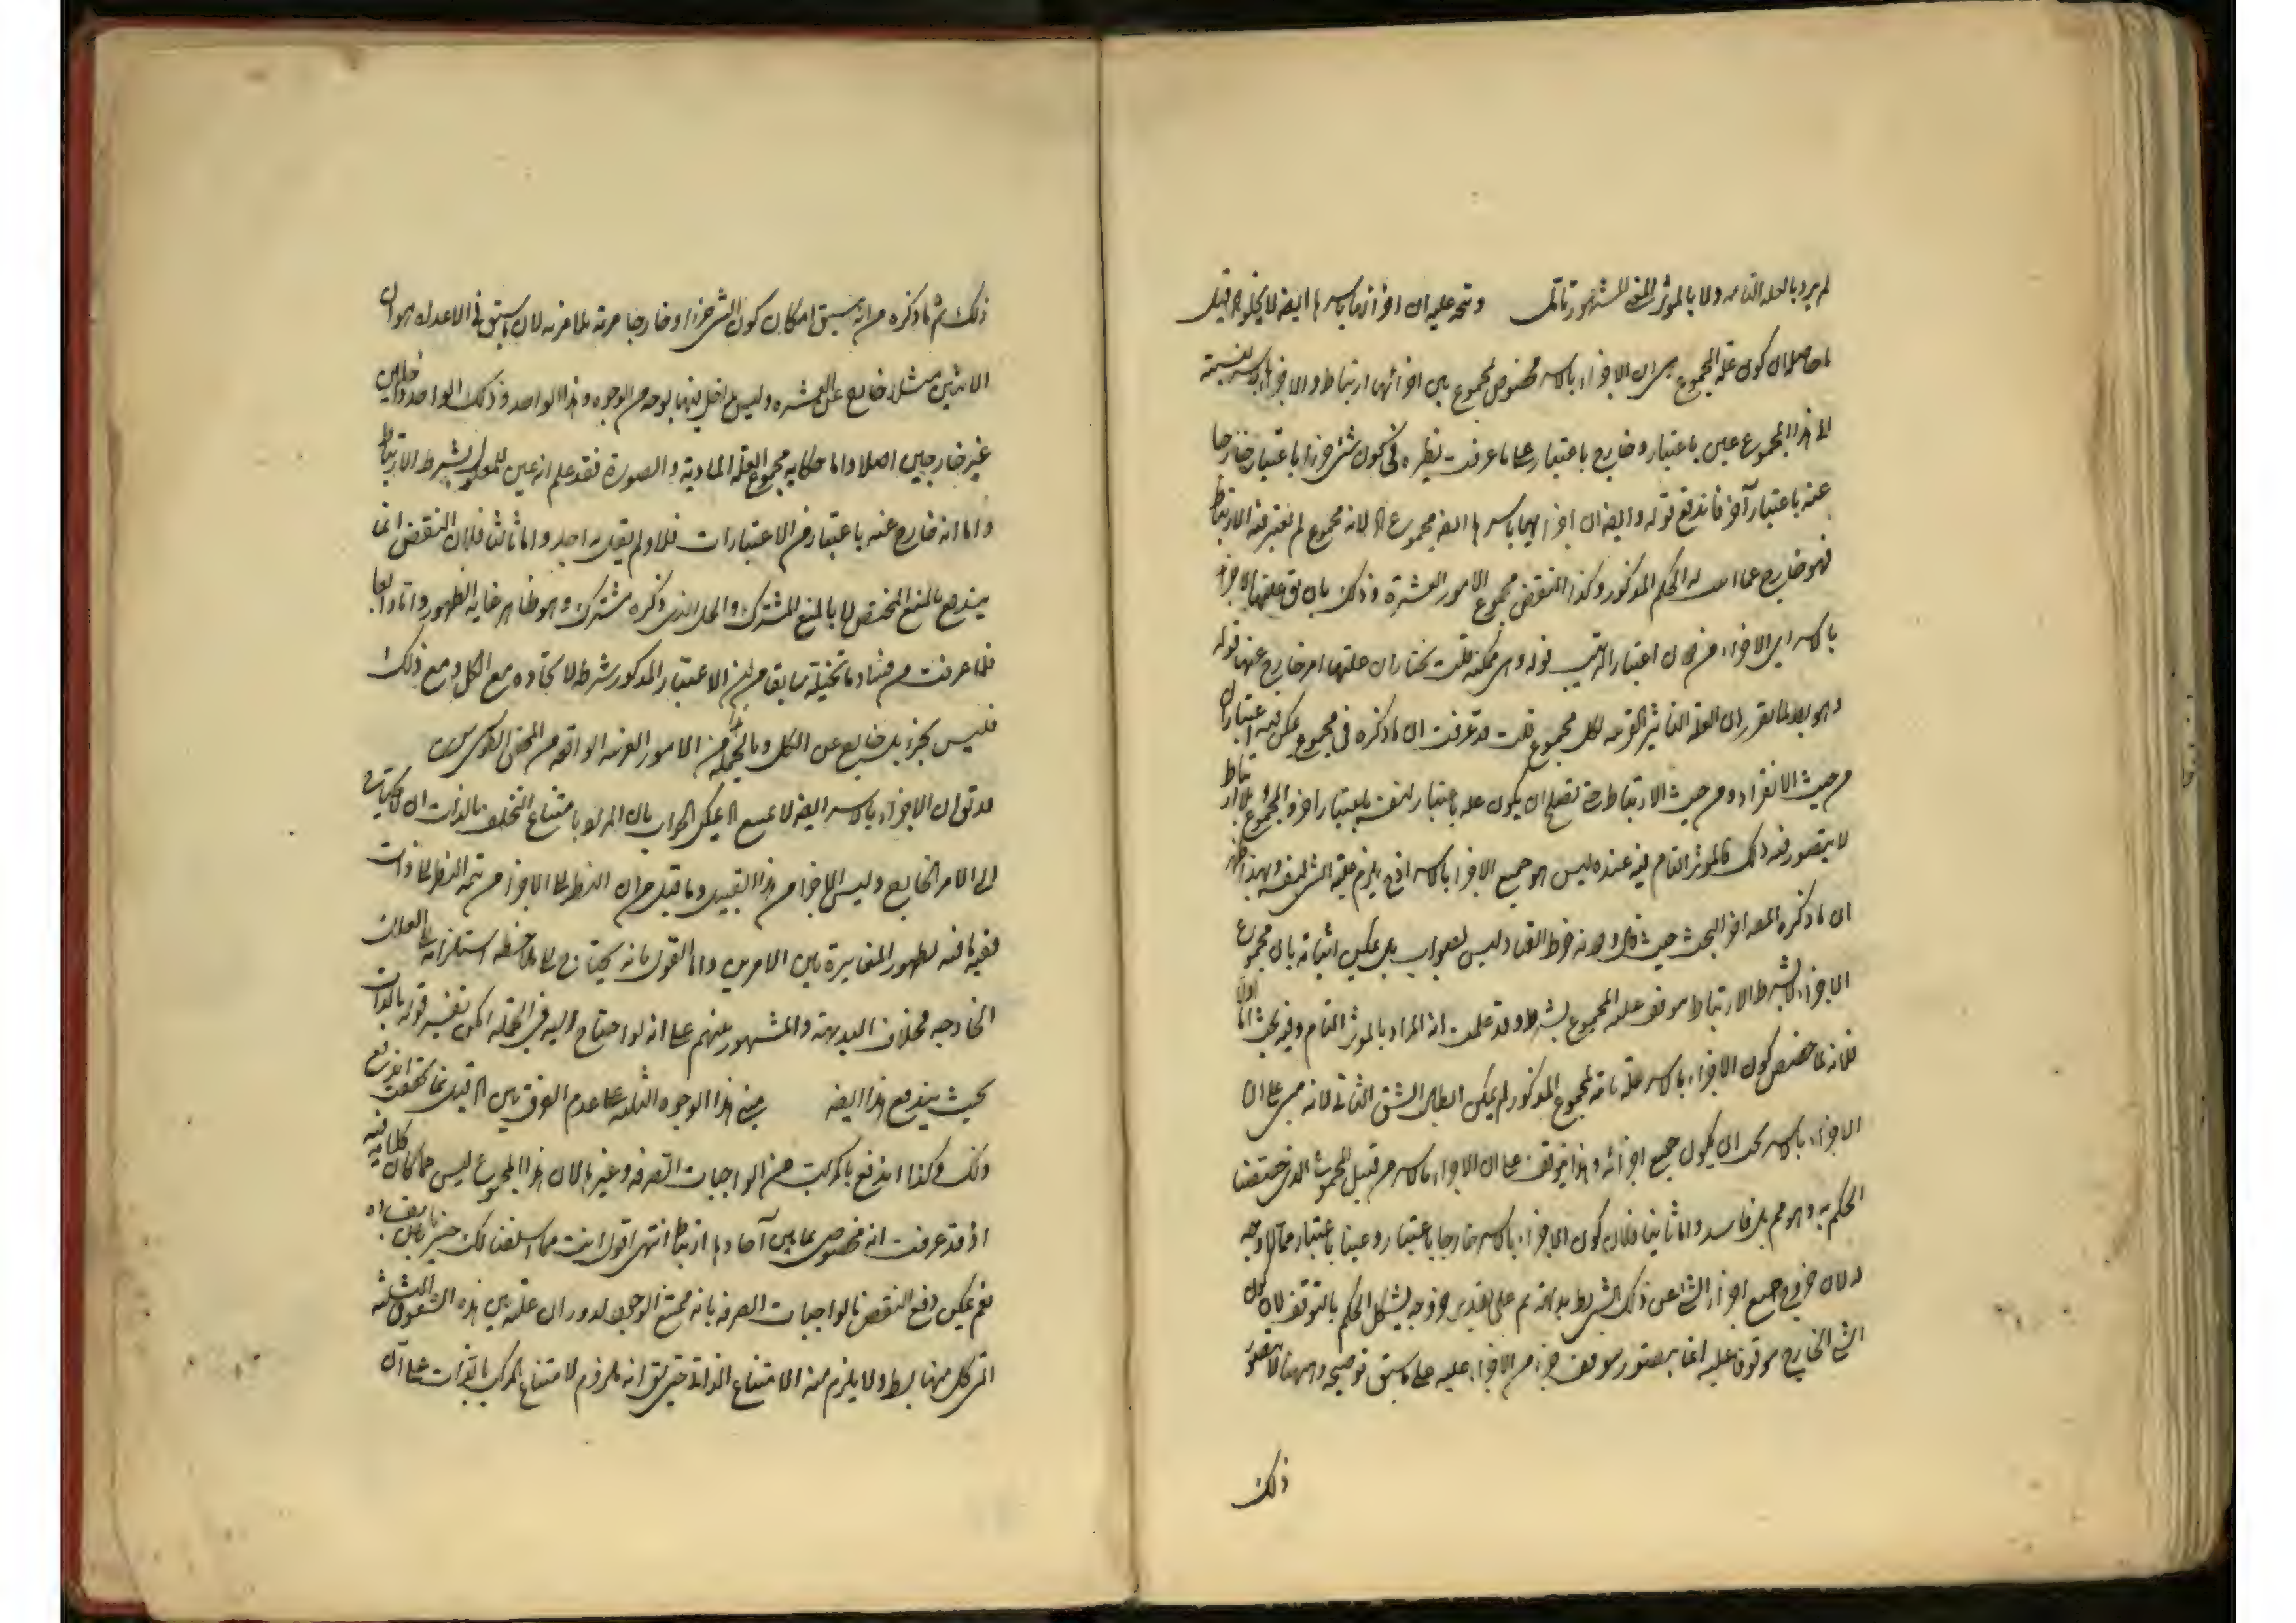 لم يرد بالعلة التامة ولا بالموثر المشهور تأمل ويتجه عليه ان اجزائها باسرها ايضا لا يخلو الخ قيل
ما حاصله ان كون علة المجموع هي ان الاجزاء بالاسر مخصوص بمجموع بين اجزائها ارتباط والاجزاء بالاسر نسبته
الى هذا المجموع عين باعتبار وخارج باعتبار على ما عرفت نظيره في كون شئ جزءا باعتبار خارجا
عنه باعتبار آخر فاندفع قوله وايضا ان اجزائهما باسرها ايضا مجموع الخ لانه مجموع لم يعتبر فيه الارتباط
فهو خارج عما له الحكم المذكور وكذا النقض بمجموع الامور العشرة وذلك بان يق علتها الاجزاء
بالاسر اي الاجزاء من دون اعتبار الترتيب قوله وهي ممكنة قلت نختار ان علتها امر خارج عنها قوله
وهو بط لما تقرر ان العلة التامة القريبة لكل مجموع قلت قد عرفت ان ما ذكره في مجموع يمكن فيه اعتباران
من حيث الانفراد ومن حيث الارتباط حتى تصلح ان يكون علة باعتبار لنفسه باعتبار آخر والمجموع بلا ارتباط
لا يتصور فيه ذلك فالموثر التام فيه عنده ليس هو جميع الاجزاء بالاسر اذ يلزم علية الشئ لنفسه وبهذا ظهر
ان ما ذكره المصه آخر البحث حيث قال ودونه خرط القتاد ليس بصواب بل يمكن اثباته بان مجموع
الاجزاء لا بشرط الارتباط موقوف عليه المجموع بشرطه وقد علمت انه المراد بالموثر التام وفيه بحث اما اولا
فلانه لما خصص كون الاجزاء بالاسر علة تامة لمجموع المذكور لم يمكن ابطال الشق الثاني لانه مبني على ان
الاجزاء بالاسر يجب ان يكون جميع اجزائه وهذا يتوقف على ان الاجزاء بالاسر من قبيل المجموع الذي خصصنا
الحكم به وهو مم بل فاسد واما ثانيا فلان كون الاجزاء بالاسر خارجا باعتبار وعينا باعتبار مما لا وجه
له لان خروج جميع اجزاء الشئ عن ذلك الشئ بط بداهة ثم على تقدير خروجه يشكل الحكم بالتوقف لان كون
الشئ الخارج موقوفا عليه انما يتصور بتوقف جزء من الاجزاء عليه على ما سبق توضيحه وههنا لا يتصور
ذلك
ذلك ثم ما ذكره من انه سبق امكان كون الشئ جزءا وخارجا مرته بلا مرية لان ما سبق في الاعداد هو ان
الاثنين مثلا خارج عن العشرة وليس بداخل فيها بوجه من الوجوه وهذا الواحد وذلك الواحد داخلين
غير خارجين اصلا واما حكاية مجموع العلة المادية والصورة فقد علم انه عين المعلول بشرط الارتباط
واما انه خارج عنه باعتبار من الاعتبارات فلا ولم يقل به احد واما ثالثا فلان النقض انما
يندفع بالمنع المختص لا بالمنع المشترك والحل الذي ذكره مشترك وهو ظاهر غاية الظهور واما رابعا
فلما عرفت من فساد ما تخيله سابقا من ان الاعتبار المذكور شرط لاتحاده مع الكل ومع ذلك
فليس بجزء بل خارج عن الكل وبالجملة هذا من الامور الغريبة الواقعة من المحشي القوشي
قد يق ان الاجزاء بالاسر ايضا لا يمتنع الخ يمكن الجواب بان المراد بامتناع التخلف بالذات ان لا يحتاج
الى الامر الخارج وليس الاجزاء من هذا القبيل وما قيل من ان النظر على الاجزاء من تتمة النظر على ذات
ففيه ما فيه لظهور المغايرة بين الامرين واما القول بانه يحتاج على ملاحظة استلزامه بالعلل
الخارجه فخلاف البديهة والمشهور منهم على انه لو احتاج اليه في الجملة امكن تفسير قوله بالذات
بحيث يندفع هذا ايضا مبنى هذا الوجوه الثلثة على عدم الفرق بين الخ قيل فما تحققت اندفع
ذلك وكذا اندفع بالمركب من الواجبات الصرفة وغيرها لان هذا المجموع ليس مما كان كلامنا فيه
اذ قد عرفت انه مخصوص بما بين آحادها ارتباط انتهى اقول انت مما اسلفناه لك خبير بما فيه
نعم يمكن دفع النقض بالواجبات الصرفة بانه ممتنع الوجود لدوران علته بين هذه الشقوق الثلثة
التي كل منها بط ولا يلزم منه الامتناع الذاتي حتى يق انه ملزوم لامتناع المركب بالذات على ان